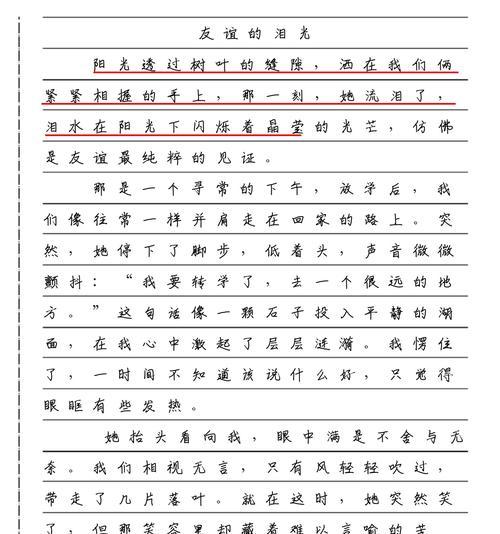 友谊的泪光
阳光透过树叶的缝隙，洒在我们俩
紧紧相握的手上，那一刻，她流泪了，
泪水在阳光下闪烁着晶莹的光芒，仿佛
是友谊最纯粹的见证。
那是一个寻常的下午，放学后，我
们像往常一样并肩走在回家的路上。突
然，她停下了脚步，低着头，声音微微
颤抖：“我要转学了，去一个很远的地
方。”这句话像一颗石子投入平静的湖
面，在我心中激起了层层涟漪。我愣住
了，一时间不知道该说什么好，只觉得
眼眶有些发热。
她抬头看向我，眼中满是不舍与无
奈。我们相视无言，只有风轻轻吹过，
带走了几片落叶。就在这时，她突然笑
了，但那笑容里却藏着难以言喻的苦